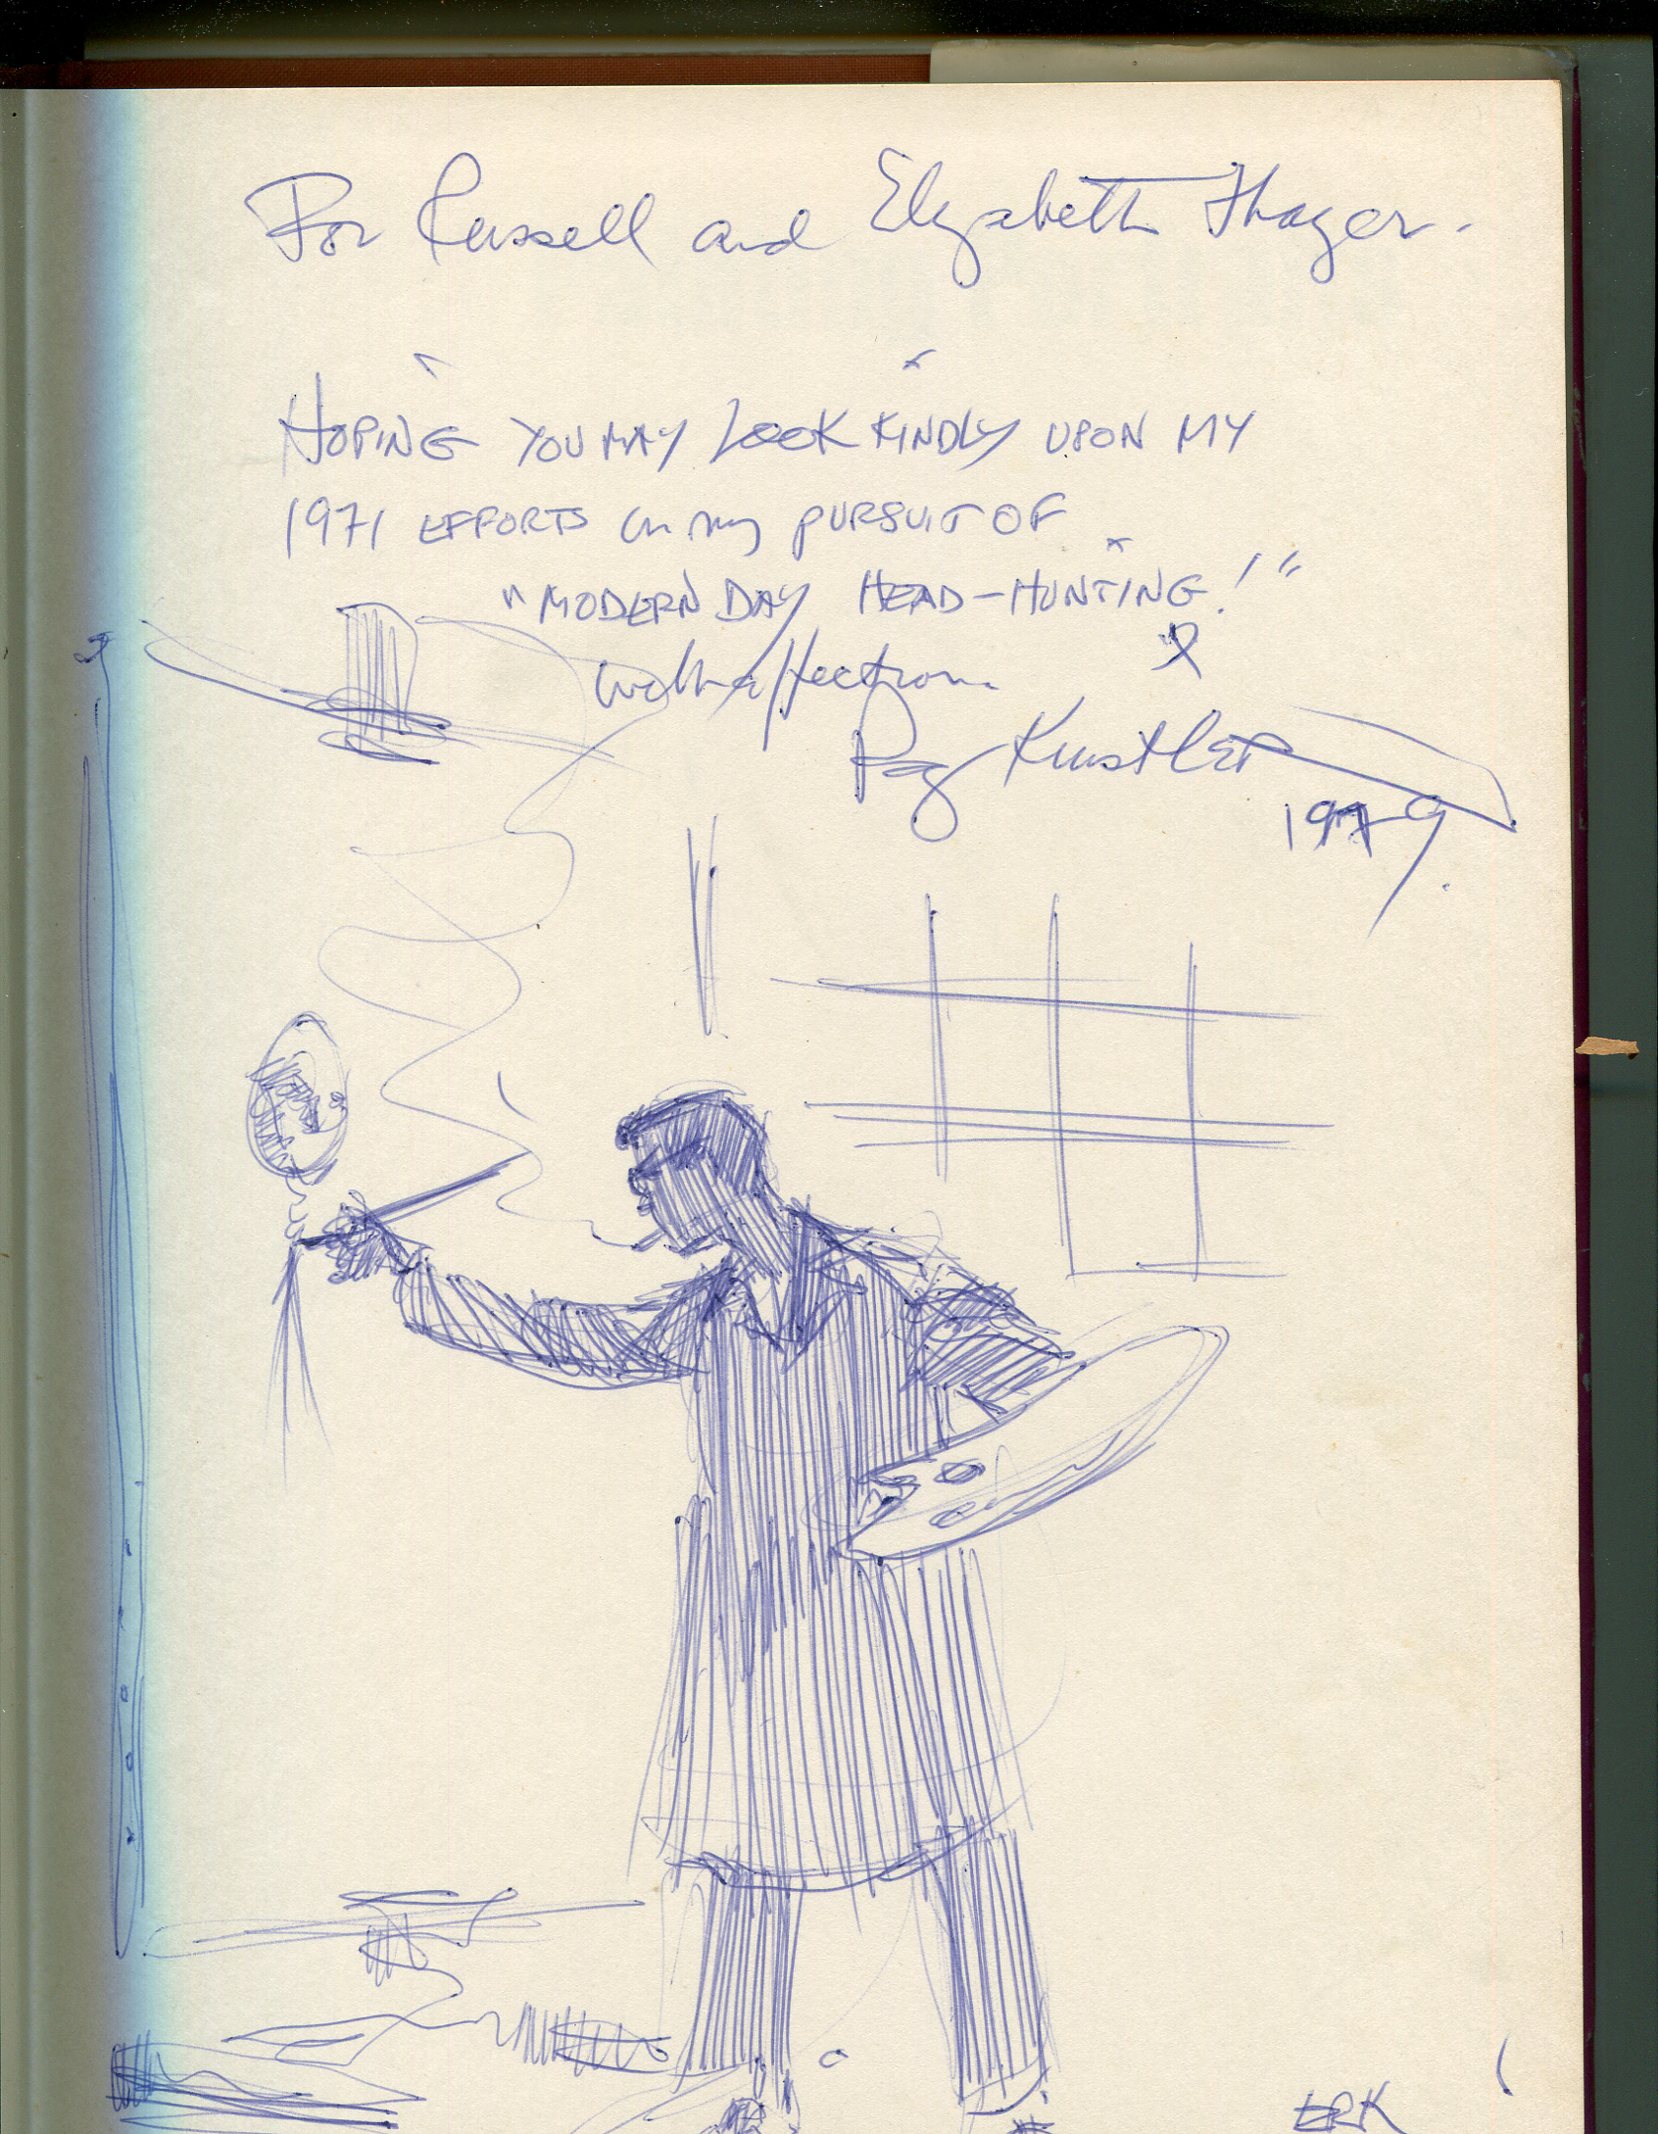 For Russell and Elizabeth Thayer.
HOPING YOU MAY LOOK KINDLY UPON MY
1971 EFFORTS in my PURSUIT OF
"MODERN DAY HEAD-HUNTING!"
with affection
Ray KinstLER
1979.
ERK